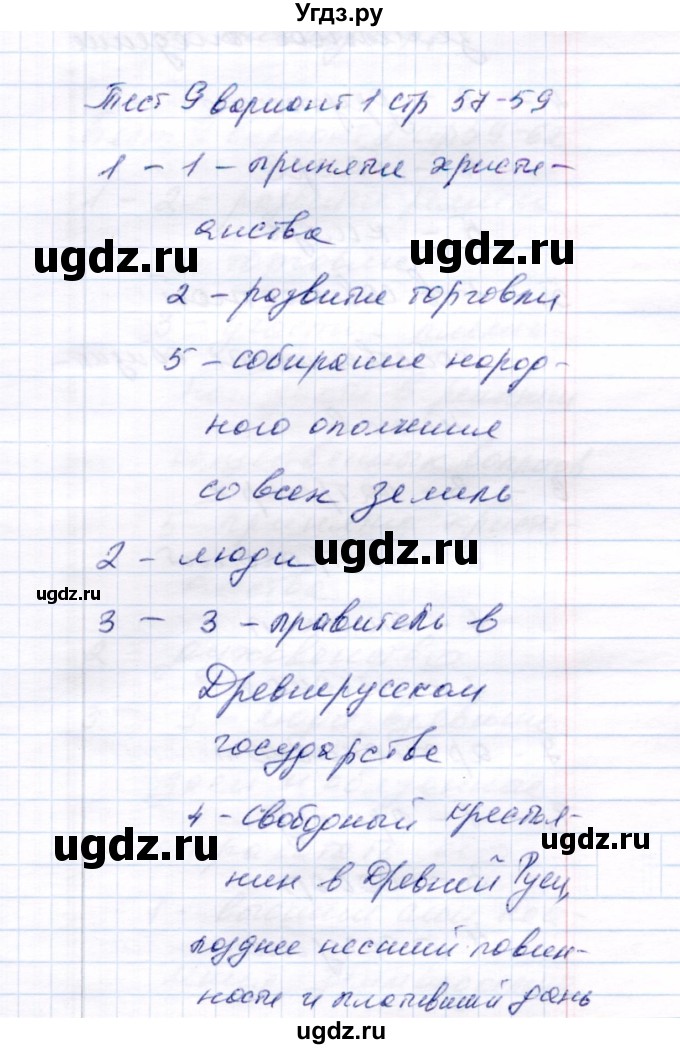 Угдз.ру
Тест 9 вариант 1 стр 57-59
1 - 1 - принятие христи-
анства
ugdz.ru
ugdz.ru
2 - развитие торговли
5 - собирание народ-
ного ополчения
со всех земель
2 - люди
ugdz.ru
ugdz.ru
3 - 3 - правитель в
Древнерусском
государстве
4 - свободный крестья-
ugdz.ru
ugdz.ru
нин в Древней Руси,
позднее несший повин-
ности и плативший дань
ugdz.ru